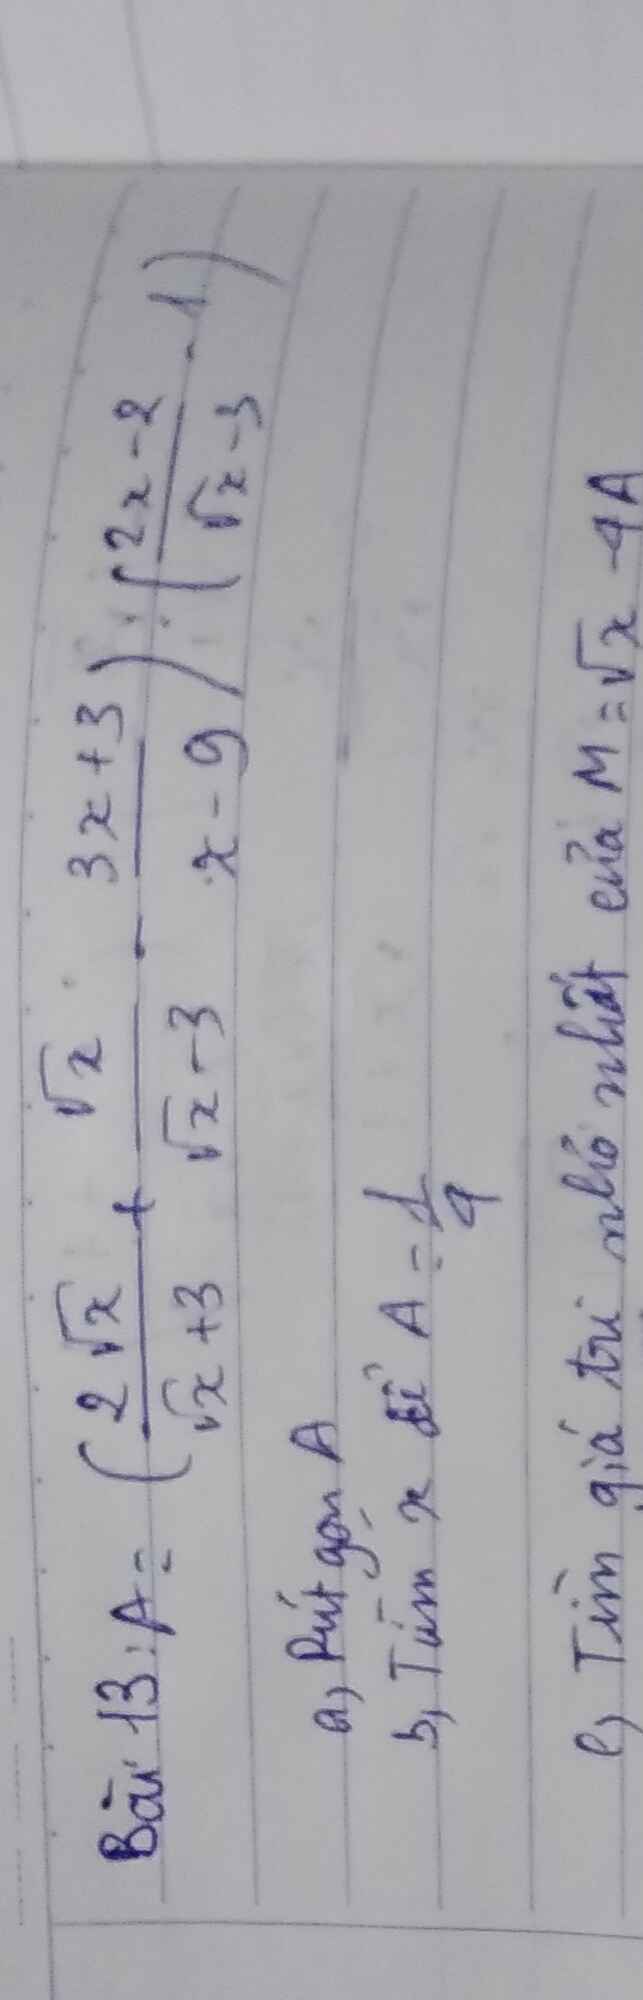 Bài 13: A = (2√x/√x+3 + √x/√x-3 - 3x+3/x-9) : (2x-2/√x-3 - 1)
a, Rút gọn A
b, Tìm x để A = 1/4
c, Tìm giá trị nhỏ nhất của M = √x - 4A